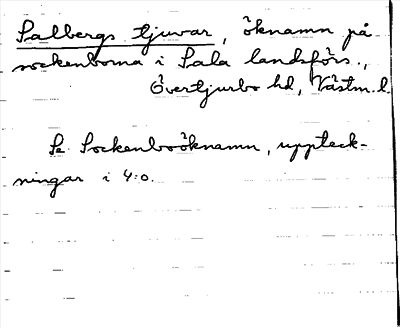 Salbergs tjuvar, öknamn på
sockenborna i Sala landsförs.,
Övertjurbo hd, Västm. l.
Se Sockenboöknamn, uppteck-
ningar i 4:o.